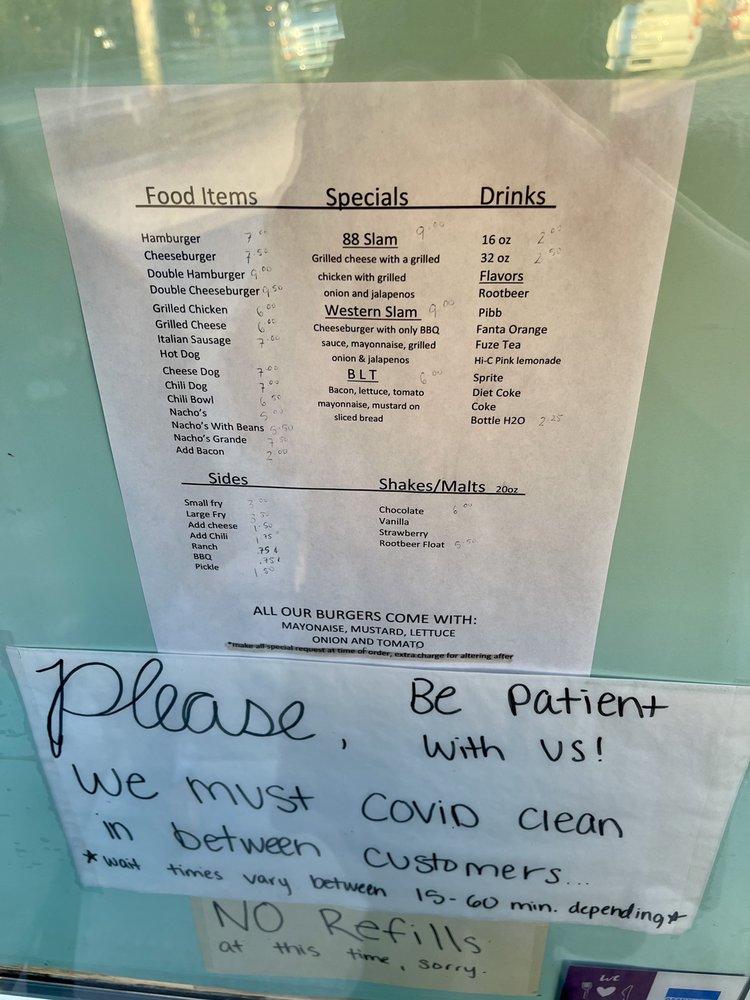 Food Items
Hamburger 7.00
Cheeseburger 7.50
Double Hamburger 9.00
Double Cheeseburger 9.50
Grilled Chicken 6.00
Grilled Cheese 6.00
Italian Sausage 7.00
Hot Dog
Cheese Dog 7.00
Chili Dog 7.00
Chili Bowl 6.50
Nacho's 5.00
Nacho's With Beans 5.50
Nacho's Grande 7.50
Add Bacon 2.00
Specials
88 Slam 9.00
Grilled cheese with a grilled
chicken with grilled
onion and jalapenos
Western Slam 9.00
Cheeseburger with only BBQ
sauce, mayonnaise, grilled
onion & jalapenos
BLT 6.00
Bacon, lettuce, tomato
mayonnaise, mustard on
sliced bread
Drinks
16 oz 2.00
32 oz 2.50
Flavors
Rootbeer
Pibb
Fanta Orange
Fuze Tea
Hi-C Pink lemonade
Sprite
Diet Coke
Coke
Bottle H2O 2.25
Sides
Small fry
Large Fry
Add cheese 1.50
Add Chili 1.75
Ranch .75¢
BBQ .75¢
Pickle 1.50
Shakes/Malts 20oz
Chocolate 6.00
Vanilla
Strawberry
Rootbeer Float 5.50
ALL OUR BURGERS COME WITH:
MAYONAISE, MUSTARD, LETTUCE
ONION AND TOMATO
*make all special request at time of order, extra charge for altering after
Please, Be Patient
with us!
We must COVID clean
in between customers...
*wait times vary between 15-60 min. depending*
NO Refills
at this time, sorry.
WE